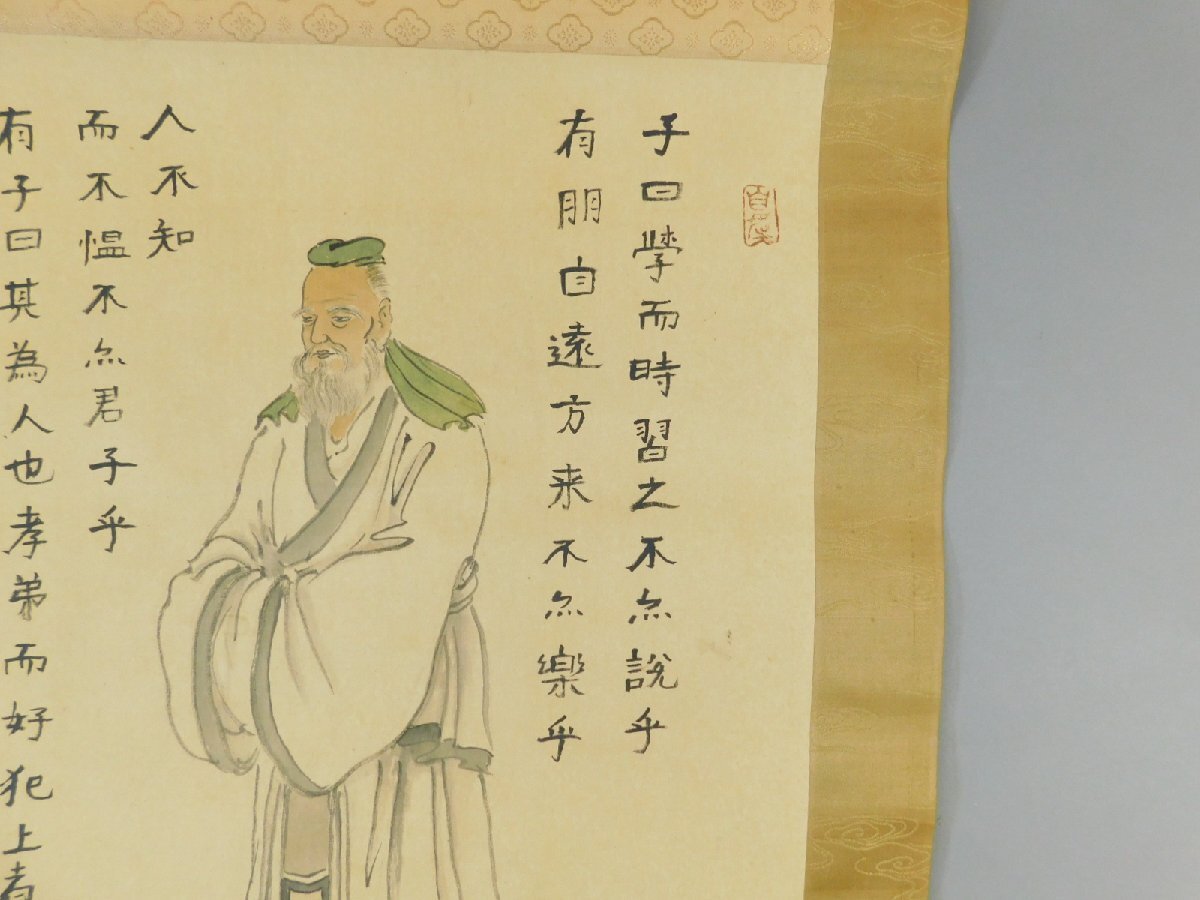 子曰學而時習之不亦說乎
有朋自遠方来不亦樂乎
人不知
而不慍不亦君子乎
有子曰其為人也孝弟而好犯上者